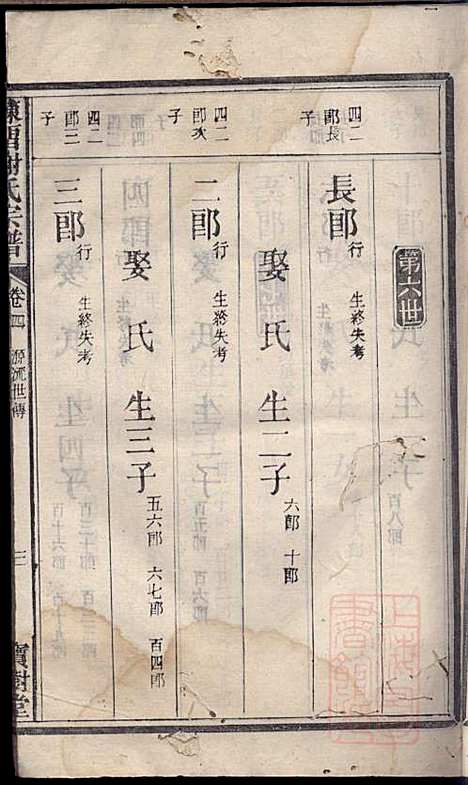 第六世
四二郎長子
長郎行 生終失考
娶 氏 生二子 六郎 十郎
四二郎次子
二郎行 生終失考
娶 氏 生三子 五六郎 六七郎 百四郎
四二郎三子
三郎行 生終失考
謝氏宗譜
卷四 源流世傳
三
寶樹堂